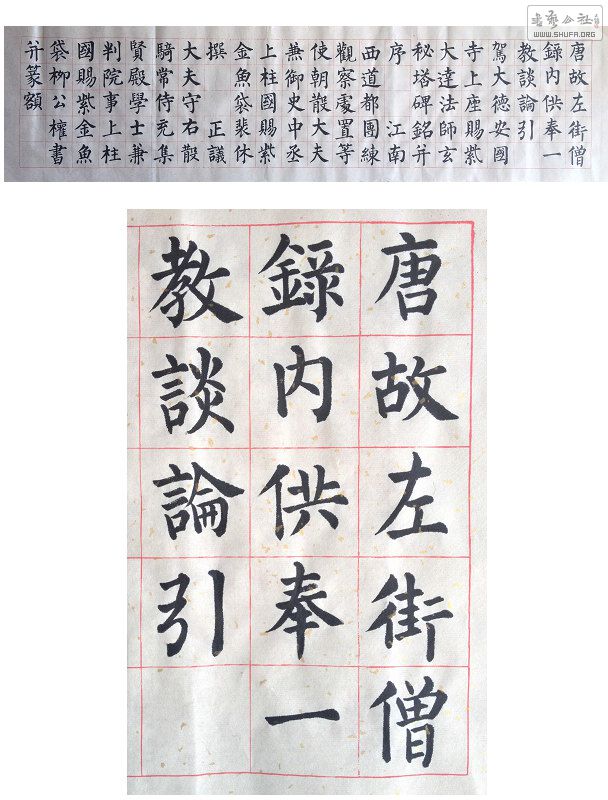 书艺公社
WWW.SHUFA.ORG
唐故左街僧
録内供奉一
教談論引
駕大德安國
寺上座賜紫
大達法師玄
秘塔碑銘并
序 江南
西道都團練
觀察處置等
使朝散大夫
兼御史中丞
上柱國賜紫
金魚袋裴休
撰 正議
大夫守右散
騎常侍充集
賢殿學士兼
判院事上柱
國賜紫金魚
袋柳公權書
并篆額
唐故左街僧
録内供奉一
教談論引